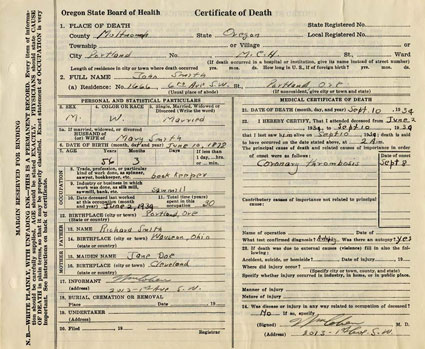 Oregon State Board of Health Certificate of Death
1. PLACE OF DEATH State Registered No.
County Multnomah State Oregon Local Registered No.
Township or Village or
City Portland No. M.C.H St., Ward
(If death occurred in a hospital or institution, give its name instead of street number)
Length of residence in city or town where death occurred yrs. mos. ds. How long in U. S., if of foreign birth? yrs. mos. ds.
2. FULL NAME John Smith
(a) Residence: No. 1666 6th Ave S.W. St., Portland Ore
(If nonresident, give city or town and state)
PERSONAL AND STATISTICAL PARTICULARS
3. SEX
M.
4. COLOR OR RACE
W.
5. Single, Married, Widowed, or Divorced (Write the word)
Married
5a. If married, widowed, or divorced
HUSBAND of
(or) WIFE of Mary Smith
6. DATE OF BIRTH (month, day and year) June 10, 1878
7. AGE Years Months Days If less than
56 3 1 day, hrs.
or min.
OCCUPATION
8. Trade, profession, or particular
kind of work done, as spinner,
sawyer, bookkeeper, etc. bookkeeper
9. Industry or business in which
work was done, as silk mill,
sawmill, bank, etc. sawmill
10. Date deceased last worked at
this occupation (month and
year) June 2, 1934
11. Total time (years)
spent in this
occupation 20
12. BIRTHPLACE (city or town) Portland, Ore
(state or country)
FATHER
13. NAME Richard Smith
14. BIRTHPLACE (city or town) Ohio
(state or country)
MOTHER
15. MAIDEN NAME Jane Doe
16. BIRTHPLACE (city or town) Cleveland
(state or country)
17. INFORMANT
(Address) S.W.
18. BURIAL, CREMATION OR REMOVAL
Place Date 19
19. UNDERTAKER
(Address)
20. Filed , 19
Registrar
MEDICAL CERTIFICATE OF DEATH
21. DATE OF DEATH (month, day, and year) Sept. 10, 1934
22. I HEREBY CERTIFY, That I attended deceased from June 2
1934, to Sept 10, 1934
that I last saw h im alive on Sept 10, 1934; death is said
to have occurred on the date stated above, at 2 A m.
The principal cause of death and related causes of importance in order of
onset were as follows: Date of onset
Coronary thrombosis Sept 8
Contributory causes of importance not related to principal
cause:
Name of operation Date of
What test confirmed diagnosis? Autopsy Was there an autopsy? yes
23. If death was due to external causes (violence) fill in also the
following:
Accident, suicide, or homicide? Date of injury 19
Where did injury occur?
(Specify city or town, county, and state)
Specify whether injury occurred in industry, in home, or in public place.
Manner of injury
Nature of injury
24. Was disease or injury in any way related to occupation of deceased?
No If so, specify
(Signed) M. D.
(Address) S.W.
MARGIN RESERVED FOR BINDING